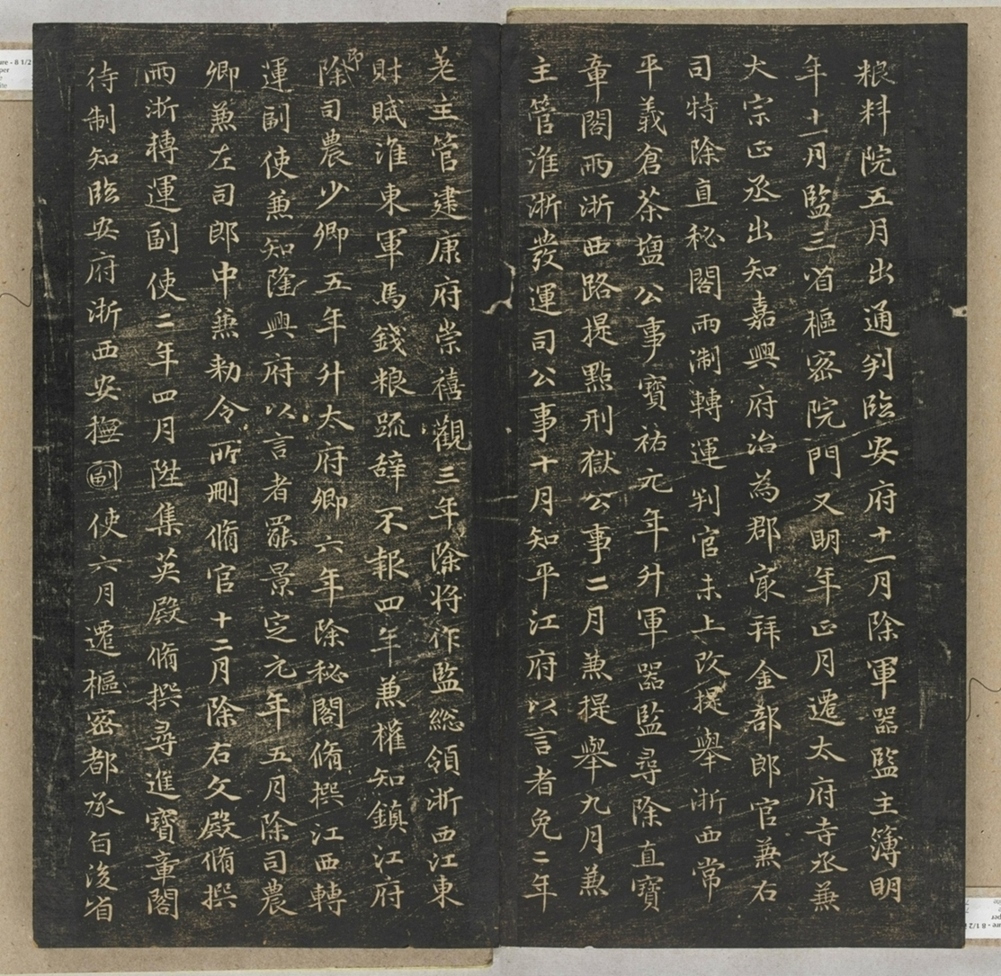 粮料院五月出通判臨安府十一月除軍器監主簿明
年十一月監三省樞密院門又明年正月遷太府寺丞兼
大宗正丞出知嘉興府治為郡冣拜金部郎官兼右
司特除直秘閣兩淛轉運判官未上改提舉浙西常
平義倉茶塩公事寶祐元年升軍器監尋除直寶
章閣兩浙西路提點刑獄公事二月兼提舉九月兼
主管淮浙發運司公事十月知平江府以言者免二年
差主管建康府崇禧觀三年除將作監総領浙西江東
財賦淮東軍馬錢粮䟽辞不報四年兼權知鎮江府
即除司農少卿五年升大府卿六年除秘閣脩撰江西轉
運副使兼知隆興府以言者罷景定元年五月除司農
卿兼左司郎中兼勑令所刪脩官十二月除右文殿脩撰
兩浙轉運副使二年四月陞集英殿脩撰尋進寶章閣
待制知臨安府浙西安撫副使六月遷樞密都承旨後省